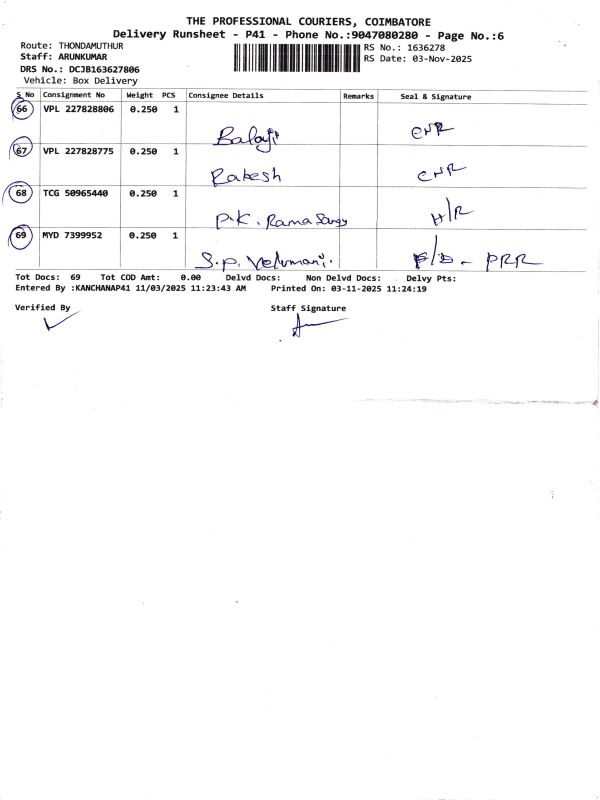 THE PROFESSIONAL COURIERS, COIMBATORE
Delivery Runsheet - P41 - Phone No.:9047080280 - Page No.:6
Route: THONDAMUTHUR
RS No.: 1636278
Staff: ARUNKUMAR
RS Date: 03-Nov-2025
DRS No.: DCJB163627806
Vehicle: Box Delivery
S No Consignment No Weight PCS Consignee Details Remarks Seal & Signature
66 VPL 227828806 0.250 1
Balaji CNR
67 VPL 227828775 0.250 1
Rakesh CNR
68 TCG 50965440 0.250 1
P.K. Rama H/R
69 MYD 7399952 0.250 1
S.P. Velumani. PRR
Tot Docs: 69 Tot COD Amt: 0.00 Delvd Docs: Non Delvd Docs: Delvy Pts:
Entered By :KANCHANAP41 11/03/2025 11:23:43 AM Printed On: 03-11-2025 11:24:19
Verified By Staff Signature